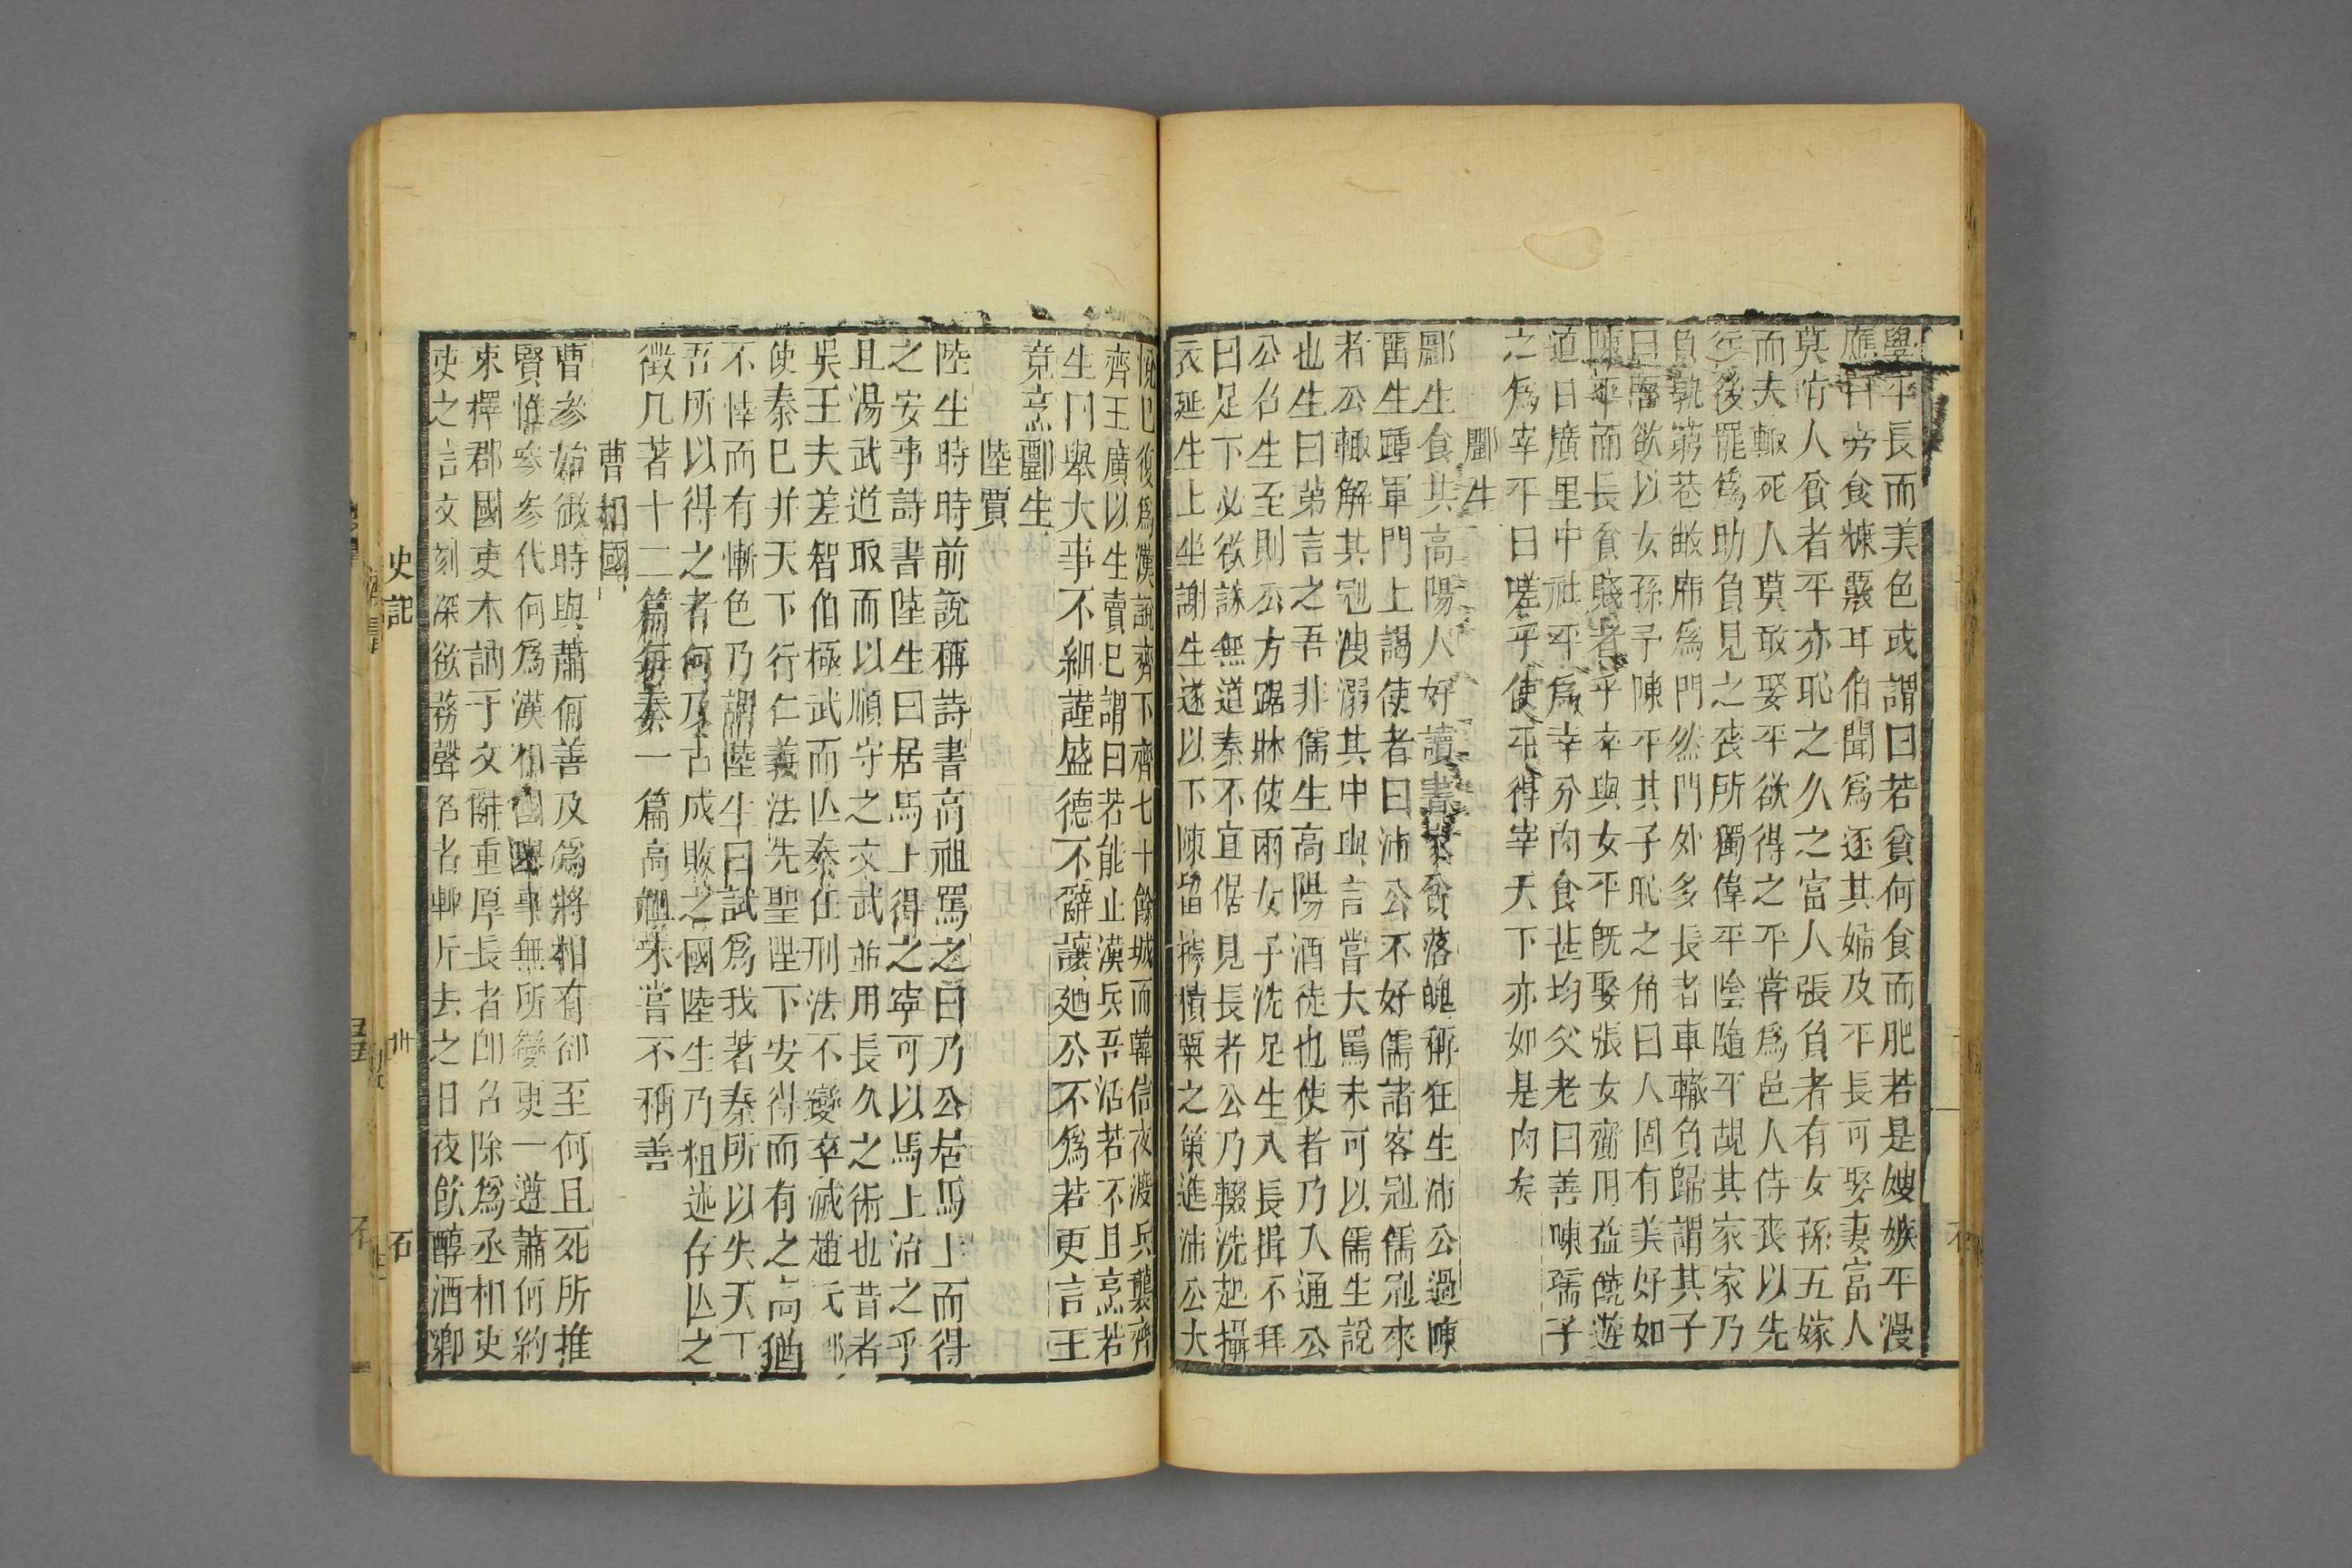 學平長而美色或謂曰若貧何食而肥若是嫂嫉平漫
應曰旁食糠覈耳伯聞爲逐其婦及平長可娶妻富人
莫有人貧者平亦恥之久之富人張負者有女孫五嫁
而夫輙死人莫敢娶平欲得之平嘗爲邑人侍丧以先
往後罷爲助負見之丧所獨偉平陰隨平覘其家家乃
負郭窮巷敝席爲門然門外多長者車轍負歸謂其子
曰吾欲以女孫予陳平其子恥之角曰人固有美好如
陳平而長貧賤者乎卒與女平旣娶張女齎用益饒遊
道日廣里中社平爲宰分肉食甚均父老曰善陳孺子
之爲宰平曰嗟乎使平得宰天下亦如是肉矣
酈生
酈生食其高陽人好讀書家貧落魄稱狂生沛公過陳
畱生踵軍門上謁使者曰沛公不好儒諸客冠儒冠來
者公輙解其冠溲溺其中與言嘗大罵未可以儒生說
也生曰弟言之吾非儒生高陽酒徒也使者乃入通公
公召生至則公方踞牀使兩女子洗足生入長揖不拜
曰足下必欲誅無道秦不宜倨見長者公乃輟洗起攝
衣延生上坐謝生遂以下陳留積粟之策進沛公大
悅已復爲漢說齊下齊七十餘城而韓信夜渡兵襲齊
齊王廣以生賣已謂曰若能止漢兵吾活若不且烹若
生曰舉大事不細謹盛德不辭讓廼公不爲若更言王
竟烹酈生
陸賈
陸生時時前說稱詩書高祖罵之曰乃公居馬上而得
之安事詩書陸生曰居馬上得之寧可以馬上治之乎
且湯武道取而以順守之文武並用長久之術也昔者
吳王夫差智伯極武而亾秦任刑法不變卒滅趙氏鄉
使秦已并天下行仁義法先聖陛下安得而有之高
不懌而有慚色乃謂陸生曰試爲我著秦所以失天下
吾所以得之者何乃古成敗之國陸生乃粗述存亾之
徵凡著十二篇每奏一篇高祖未嘗不稱善
曹相國
曹參始微時與蕭何善及爲將相有卻至何且死所推
賢惟參參代何爲漢相國舉事無所變更一遵蕭何約
束擇郡國吏木訥于文辭重厚長者卽召除爲丞相史
吏之言文刻深欲務聲名者輙斥去之日夜飮醇酒卿
史記
卅
石